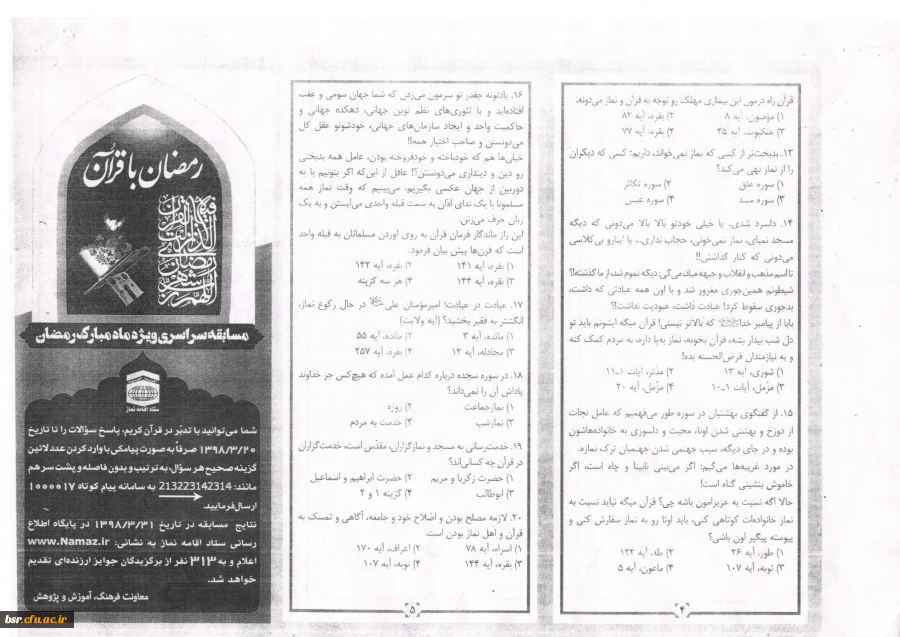 قرآن راه درمون این بیماری مهلک رو توجه به قرآن و نماز می‌دونه.
۱) مؤمنون، آیه ۸ ۲) بقره، آیه ۸۲
۳) عنکبوت، آیه ۴۵ ۴) بقره، آیه ۷۷
۱۳. بدبخت‌تر از کسی که نماز نمی‌خواند، داریم؛ کسی که دیگران
را از نماز نهی می‌کند؟
۱) سوره علق ۲) سوره تکاثر
۳) سوره مسد ۴) سوره عبس
۱۴. دلسرد شدی، یا خیلی خودتو بالا بالا می‌دونی که دیگه
مسجد نمیای، نماز نمی‌خونی، حجاب نداری... یا اینارو بی‌کلاسی
می‌دونی که کنار گذاشتی!!
تا اسم مذهب و انقلاب و جبهه میاد می‌گی: دیگه تموم شد، از ما گذشته!؟
شیطونم همین‌جوری مغرور شد و با اون همه عبادتی که داشت،
بدجوری سقوط کرد! عبادت داشت، عبودیت نداشت!؟
بابا از پیامبر خدا که بالاتر نیستی! قرآن میگه ایشونم باید تو
دل شب بیدار بشه، قرآن بخونه، نماز به‌پا داره، به مردم کمک کنه
و به نیازمندان قرض‌الحسنه بده!
۱) شوری، آیه ۱۳ ۲) مدثر، آیات ۱ـ۱۱
۳) مزّمل، آیات ۱ـ۱۰ ۴) مزّمل، آیه ۲۰
۱۵. از گفتگوی بهشتیان در سوره طور می‌فهمیم که عامل نجات
از دوزخ و بهشتی شدن اونا، محبت و دلسوزی به خانواده‌هاشون
بوده و در جای دیگه، سبب جهنمی شدن جهنمیان ترک نمازه.
در مورد غریبه‌ها می‌گیم: اگر می‌بینی نابینا و چاه است، اگر
خاموش بنشینی گناه است!
حالا اگه نسبت به عزیزامون باشه چی؟ قرآن میگه نباید نسبت به
نماز خانواده‌ات کوتاهی کنی، باید اونا رو به نماز سفارش کنی و
پیوسته پیگیر اون باشی؟
۱) طور، آیه ۲۶ ۲) طه، آیه ۱۳۲
۳) توبه، آیه ۱۰۷ ۴) ماعون، آیه ۵
۴
۱۶. یادتونه چقدر تو سرمون می‌زدن که شما جهان سومی و عقب
افتاده‌اید و با تئوری‌های نظم نوین جهانی، دهکده جهانی و
حاکمیت واحد و ایجاد سازمان‌های جهانی، خودشونو عقل کل
می‌دونستن و صاحب اختیار همه!!
خیلی‌ها هم که خودباخته و خودفروخته بودن، عامل همه بدبختی
رو دین و دینداری می‌دونستن؟! غافل از این‌که اگر بتونیم با یه
دوربین از جهان عکسی بگیریم، می‌بینیم که وقت نماز همه
مسلمونا با یک ندای اذان به سمت قبله واحدی می‌ایستن و به یک
زبان حرف می‌زنن.
این راز ماندگار فرمان قرآن به روی آوردن مسلمانان به قبله واحد
است که قرن‌ها پیش بیان فرمود.
۱) بقره، آیه ۱۴۱ ۲) بقره، آیه ۱۴۲
۳) بقره، آیه ۱۴۴ ۴) هر سه گزینه
۱۷. عبادت در عبادت؛ امیرمؤمنان علی در حال رکوع نماز،
انگشتر به فقیر بخشید؟ (آیه ولایت)
۱) مائده، آیه ۳ ۲) مائده، آیه ۵۵
۳) مجادله، آیه ۱۲ ۴) بقره، آیه ۲۵۷
۱۸. در سوره سجده درباره کدام عمل آمده که هیچ‌کس جز خداوند
پاداش آن را نمی‌داند؟
۱) نمازجماعت ۲) روزه
۳) نمازشب ۴) خدمت به مردم
۱۹. خدمت‌رسانی به مسجد و نمازگزاران، مقدّس است، خدمت‌گزاران
در قرآن چه کسانی‌اند؟
۱) حضرت زکریا و مریم ۲) حضرت ابراهیم و اسماعیل
۳) ابوطالب ۴) گزینه ۱ و ۲
۲۰. لازمه مصلح بودن و اصلاح خود و جامعه، آگاهی و تمسک به
قرآن و اهل نماز بودن است.
۱) اسراء، آیه ۷۸ ۲) اعراف، آیه ۱۷۰
۳) بقره، آیه ۱۴۴ ۴) توبه، آیه ۱۰۷
۵
رمضان با قرآن
مسابقه سراسری ویژه ماه مبارک رمضان
ستاد اقامه نماز
شما می‌توانید با تدبّر در قرآن کریم، پاسخ سؤالات را تا تاریخ
۱۳۹۸/۳/۲۰ صرفاً به صورت پیامکی با وارد کردن عدد لاتین
گزینه صحیح هر سؤال، به ترتیب و بدون فاصله و پشت سر هم
مانند: 213223142314 به سامانه پیام کوتاه ۱۰۰۰۰۱۷
ارسال فرمایید.
نتایج مسابقه در تاریخ ۱۳۹۸/۳/۳۱ در پایگاه اطلاع
رسانی ستاد اقامه نماز به نشانی: www.Namaz.ir
اعلام و به ۳۱۳ نفر از برگزیدگان جوایز ارزنده‌ای تقدیم
خواهد شد.
معاونت فرهنگ، آموزش و پژوهش
bsr.cfu.ac.ir